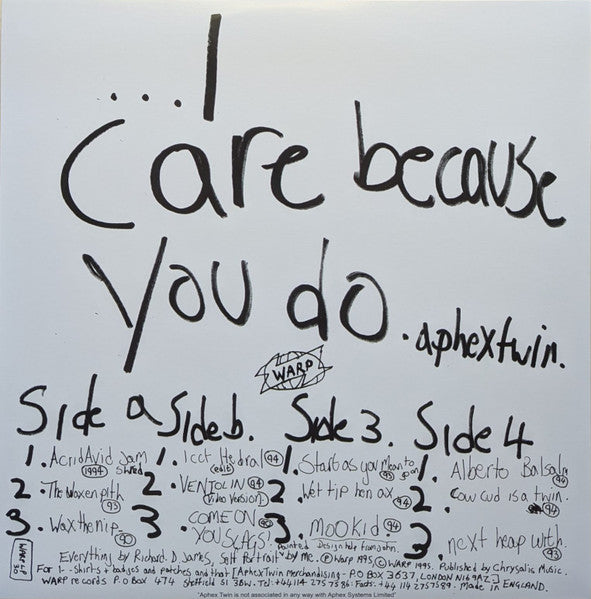 ...I
Care because
you do.
.aphextwin.
WARP
Side a Side b. Side 3. Side 4
1. AcridAvid Jam Shred 1994
2. The Waxen pith 93
3. Wax the nip 90
1. Icct Hedral (edit) 94
2. VENTOLIN (Video Version) 94
3. COME ON YOU SLAGS! 90
1. Start as you Mean to go on 93
2. Wet tip hen ax 94
3. Mookid. 94
1. Alberto Balsalm 94
2. Cow cud is a twin. 94
3. next heap with. 93
Painted Design help from John.
Everything by Richard. D James, Self Portrait by Me. ℗ Warp 1995, © WARP 1995. Published by Chrysalis Music.
WARP LP 30
For T-Shirts + badges and patches and that [Aphex Twin Merchandising - P.O BOX 3637, LONDON NI69AZ]
WARP records P.O BOX 474 Sheffield S1 3BW. Tel: +44 114 275 7586. Facts: +44 114 2757589. Made in ENGLAND.
"Aphex Twin is not associated in any way with Aphex Systems Limited"